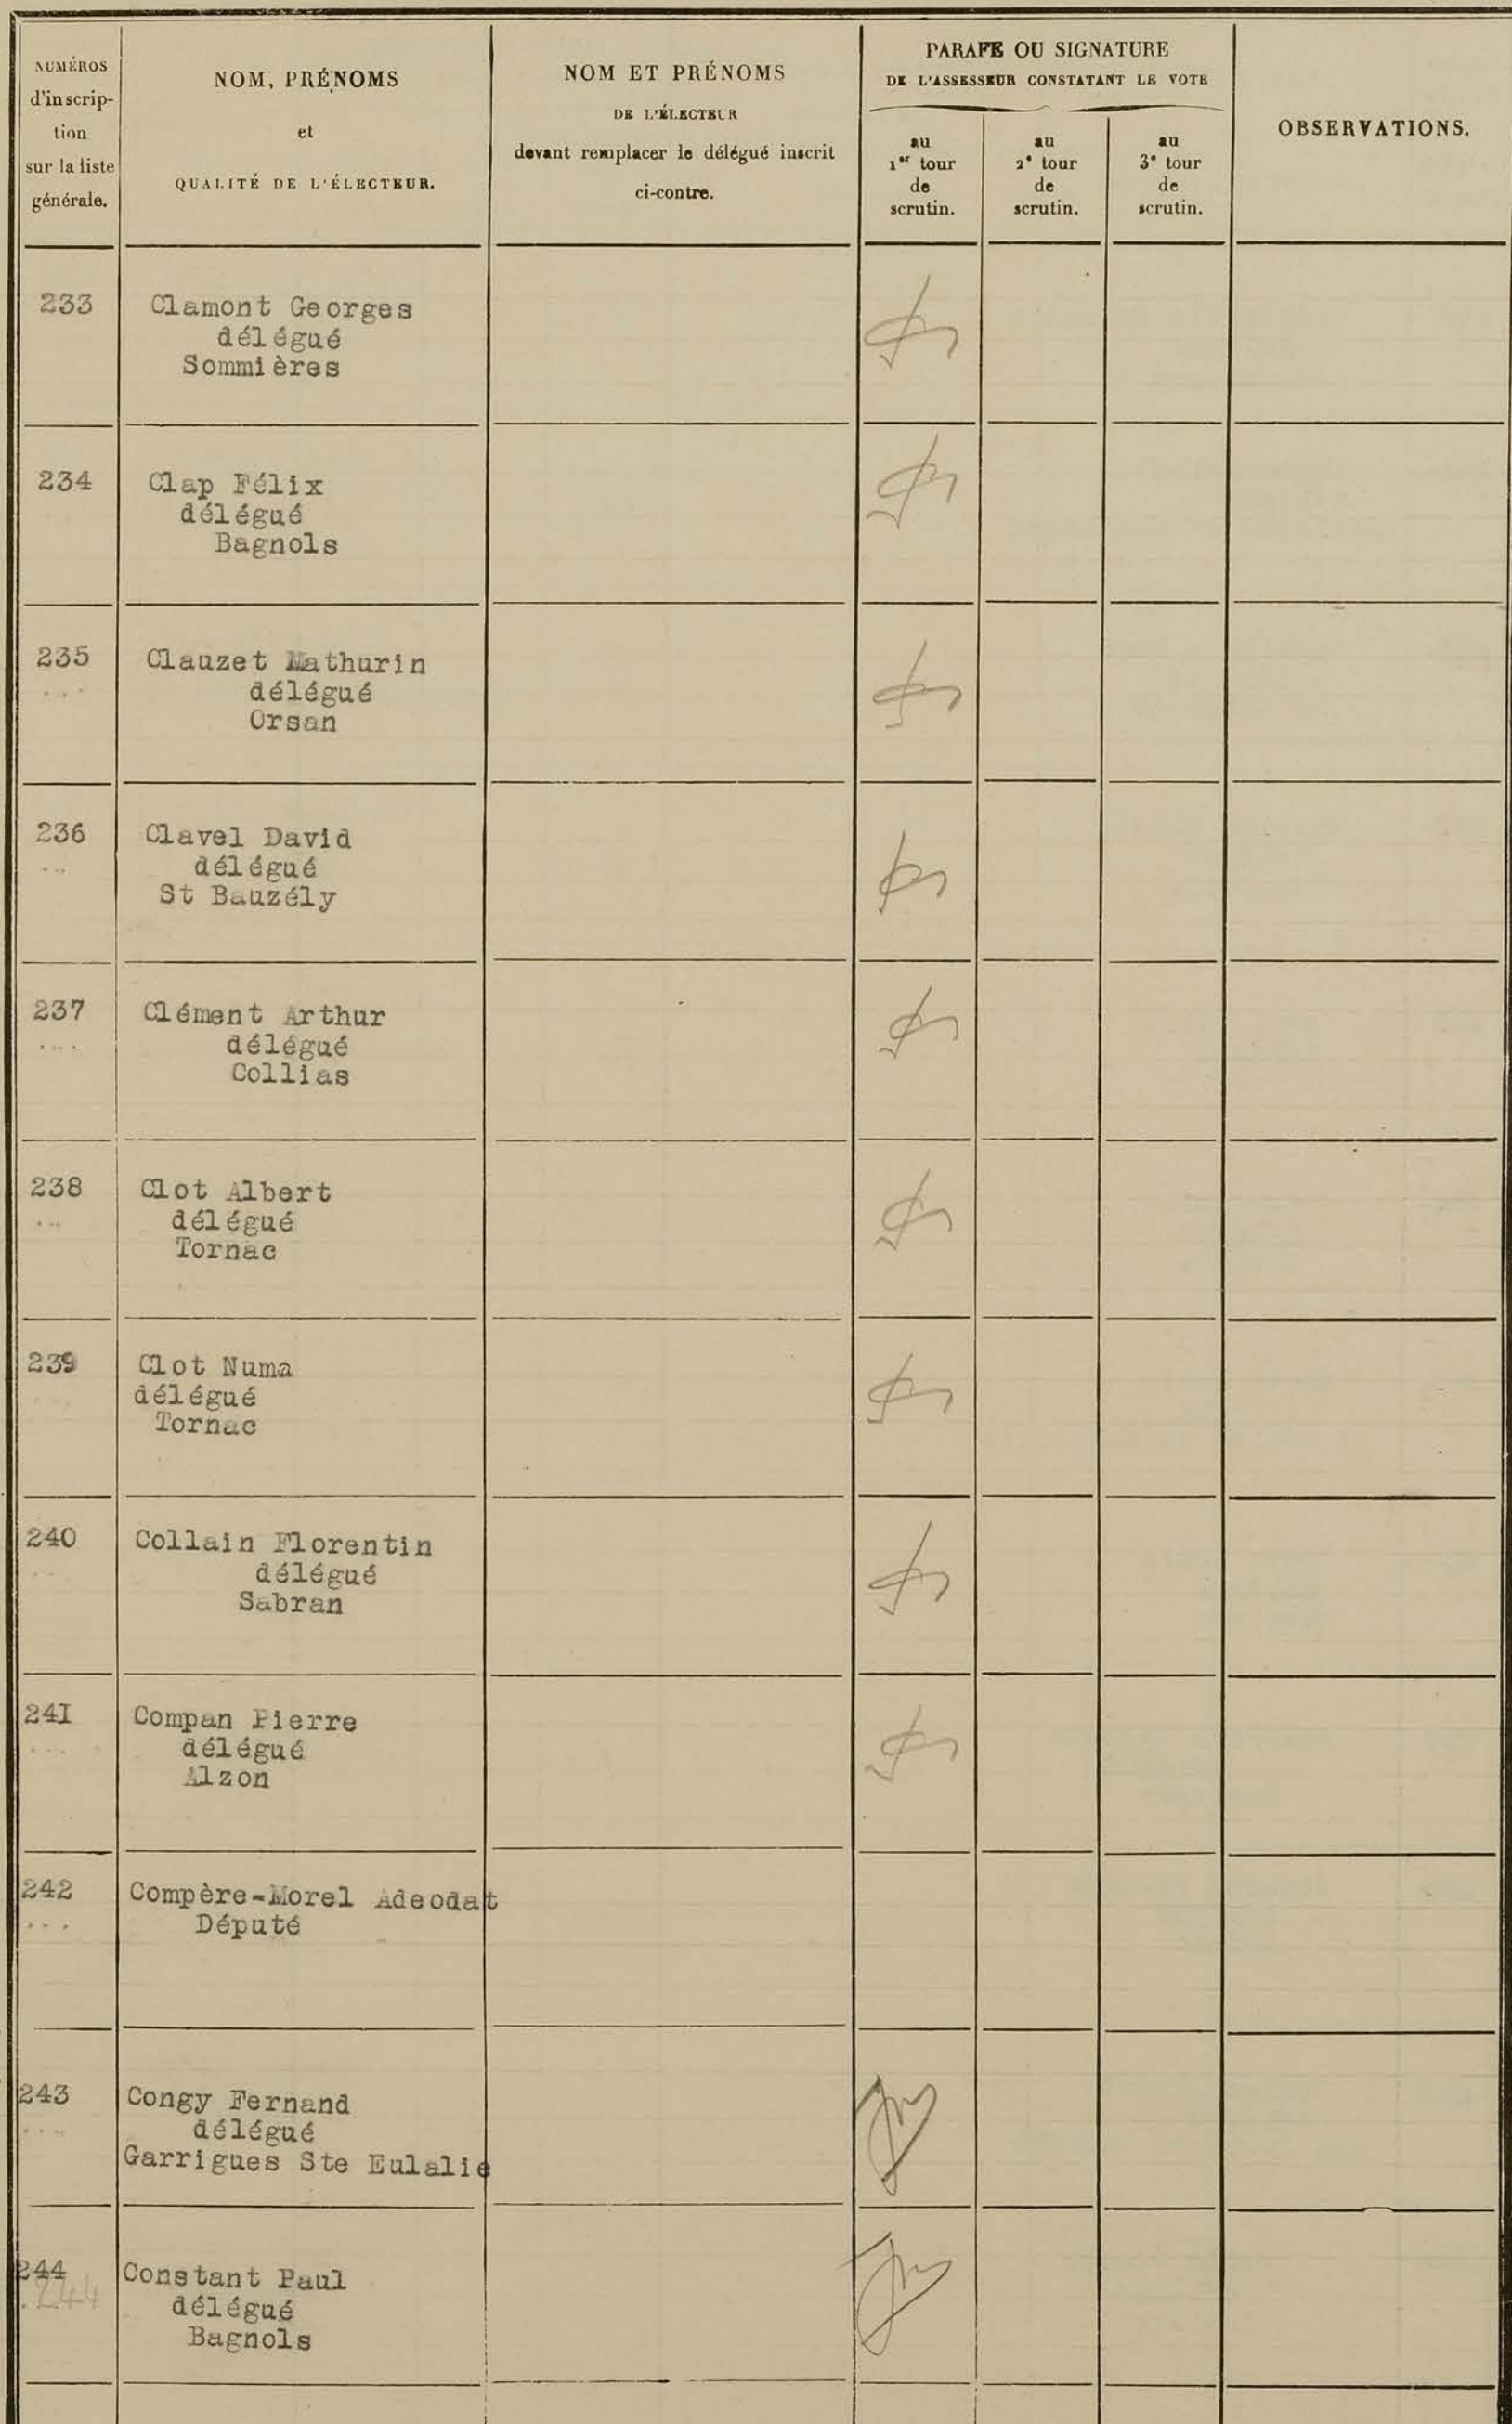 NUMÉROS
d'inscrip-
tion
sur la liste
générale.
NOM, PRÉNOMS
et
QUALITÉ DE L'ÉLECTEUR.
NOM ET PRÉNOMS
DE L'ÉLECTEUR
devant remplacer le délégué inscrit
ci-contre.
PARAFE OU SIGNATURE
DE L'ASSESSEUR CONSTATANT LE VOTE
au
1er tour
de
scrutin.
au
2e tour
de
scrutin.
au
3e tour
de
scrutin.
OBSERVATIONS.
233 Clamont Georges
délégué
Sommières
234 Clap Félix
délégué
Bagnols
235 Clauzet Mathurin
délégué
Orsan
236 Clavel David
délégué
St Bauzély
237 Clément Arthur
délégué
Collias
238 Clot Albert
délégué
Tornac
239 Clot Numa
délégué
Tornac
240 Collain Florentin
délégué
Sabran
241 Compan Pierre
délégué
Alzon
242 Compère-Morel Adeodat
Député
243 Congy Fernand
délégué
Garrigues Ste Eulalie
244 Constant Paul
244 délégué
Bagnols